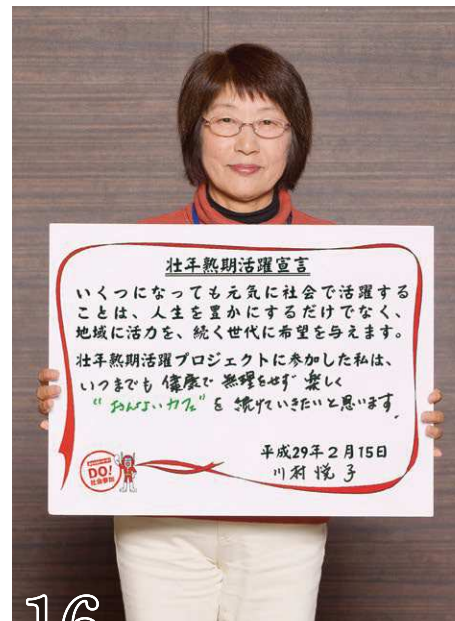 壮年熟期活躍宣言
いくつになっても元気に社会で活躍する
ことは、人生を豊かにするだけでなく、
地域に活力を、続く世代に希望を与えます。
壮年熟期活躍プロジェクトに参加した私は、
いつまでも 健康で 無理をせず 楽しく
"おんよいカフェ" を 続けていきたいと思います。
平成29年2月15日
川村 悦子
DO!
社会参加
16